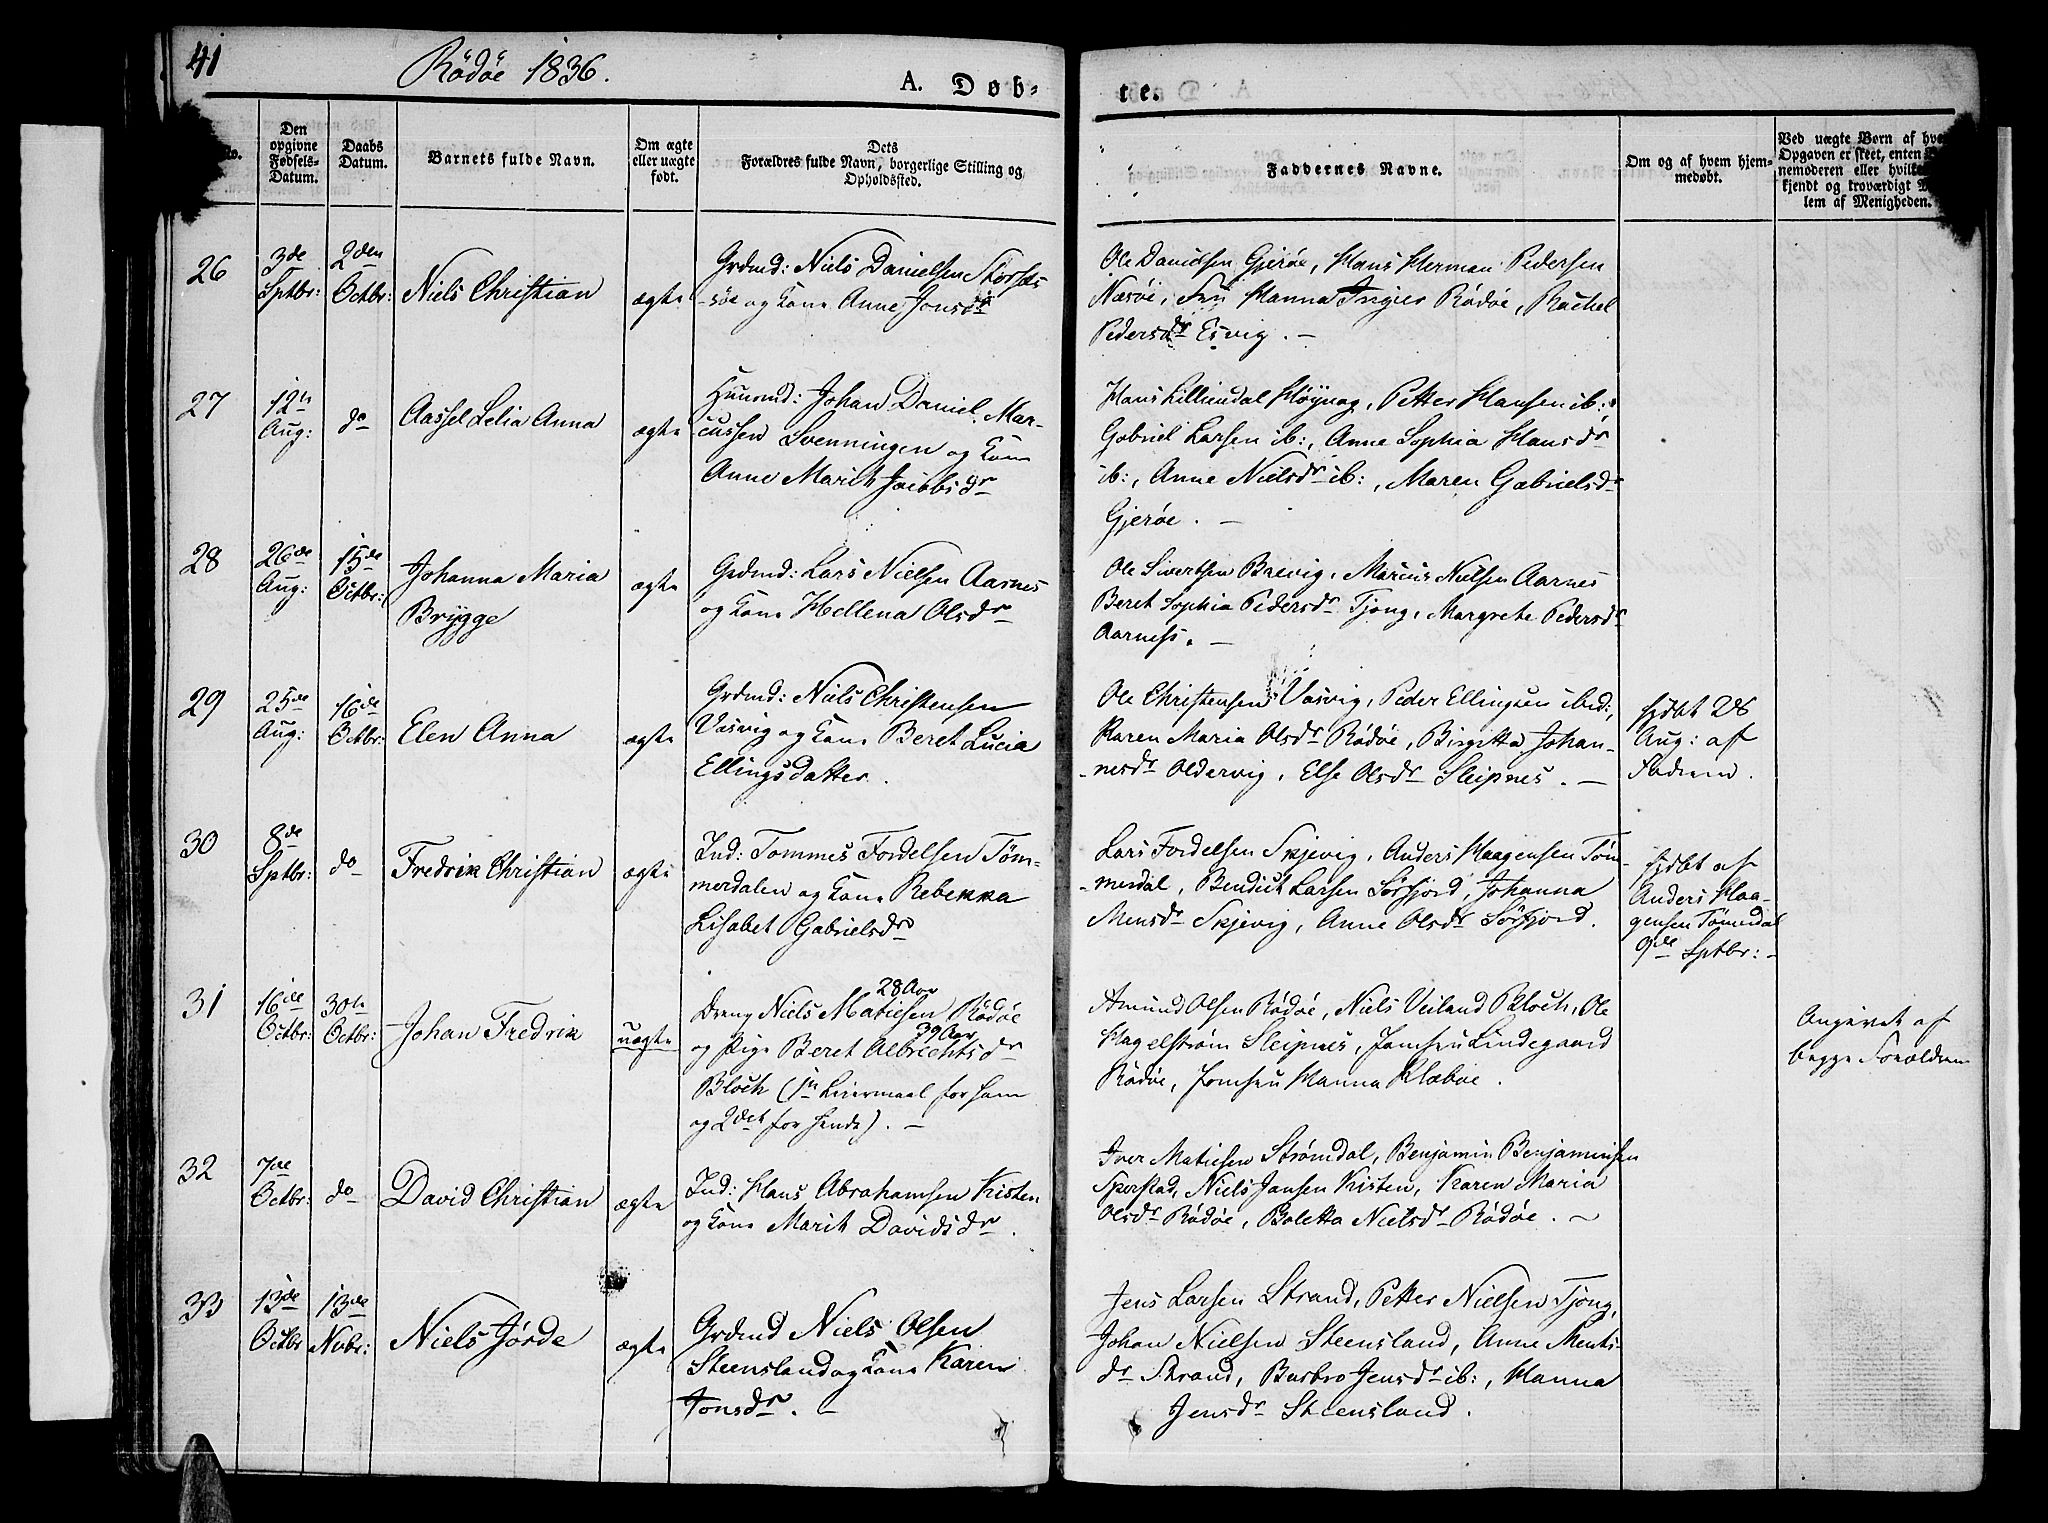 41
Rödöe 1836.
A. Døb-
te.
No.
Den
opgivne
Fødsels-
Datum.
Daabs
Datum.
Barnets fulde Navn.
Om ægte
eller uægte
født.
Dets
Forældres fulde Navn, borgerlige Stilling og
Opholdssted.
Faddernes Navne.
Om og af hvem hjem-
medøbt.
Ved uægte Børn af hvem
Opgaven er skeet, enten
nemoderen eller
kjendt og troværdigt
lem af Menigheden.
26
3de
Sptbr:
2den
Octbr:
Niels Christian
ægte
Grdmd: Niels Danielsen
-söe og Kone Anne Jonsdr
Ole Davidsen Gjeröe, Hans Herman Pedersen
Næsöe, Hanna Inger Rödöe, Rachel
Pedersdr Esvig. -
27
12te
Aug:
do
Aassel Lelia Anna
ægte
Huusmd: Johan Daniel Mar-
cussen Svenningen og Kone
Anne Marith Jacobsdr
Hans Lillendal Höynag, Petter Hansen ib:,
Gabriel Larsen ib:, Anne Sophia Hansdr
ib:, Anne Nielsdr ib:, Maren Gabrielsdr
Gjeröe. -
28
26de
Aug:
15de
Octbr:
Johanna Maria
Brÿgge
ægte
Grdmd: Lars Nielsen Aarnes
og Kone Hellena Olsdr
Ole Sivertsen Brevig, Marcus Nielsen Aarnes
Beret Sophia Pedersdr Tjong, Margrete Pedersdr
Aarness. -
29
25de
Aug:
16de
Octbr:
Elen Anna
ægte
Grdmd: Niels Christensen
Vasvig og Kone Beret Lucia
Ellingsdatter.
Ole Christensen Vasvig, Peder Ellingsen ibid:,
Karen Maria Olsdr Rödöe, Birgitta Johan-
-nesdr Oldervig, Else Olsdr Sleipnes. -
hjdbt 26
Aug: af
Fadren.
30
8de
Sptbr:
do
Fredrik Christian
ægte
Ind: Tommes Fordelsen Töm-
merdalen og Kone Rebekka
Lisabet Gabrielsdr
Lars Fordelsen Skjevig, Anders Haagensen Töm-
-merdal, Bendict Larsen Sörfjord, Johanna
Mensdr Skjevig, Anne Olsdr Sörfjord.
hjdbt af
Anders Haa-
gensen Tömerdal
9de Sptbr: -
31
16de
Octbr:
30te
Octbr:
Johan Fredrik
uægte
28 Aar
Dreng Niels Matiesen Rödöe
39 Aar
og Pige Beret Albrechtsdr
Bloch (1te Leiermaal for ham
og 2det for hende). -
Amund Olsen Rödöe, Niels Veiland Bloch, Ole
Hagelström Sleipnes, Jomfru Lindegaard
Rödöe, Jomfru Hanna Klæboe.
Angivet af
begge Forældrene
32
7de
Octbr:
do
David Christian
ægte
Ind: Hans Abrahamsen Kisten
og Kone Marit Davidsdr.
Iver Matiesen Strömdal, Benjamin Benjaminsen
Sperstad, Niels Jansen Kisten, Karen Maria
Olsdr Rödöe, Boletta Nielsdr Rödöe. -
33
13de
Octbr
13de
Nvbr:
Niels Jörde
ægte
Grdmd Niels Olsen
Steensland og Kone Karen
Jonsdr. -
Jens Larsen Strand, Petter Nielsen Tjong,
Johan Nielsen Steensland, Anne Ments-
dr Strand, Barbro Jensdr ib:, Hanna
Jensdr Steensland.